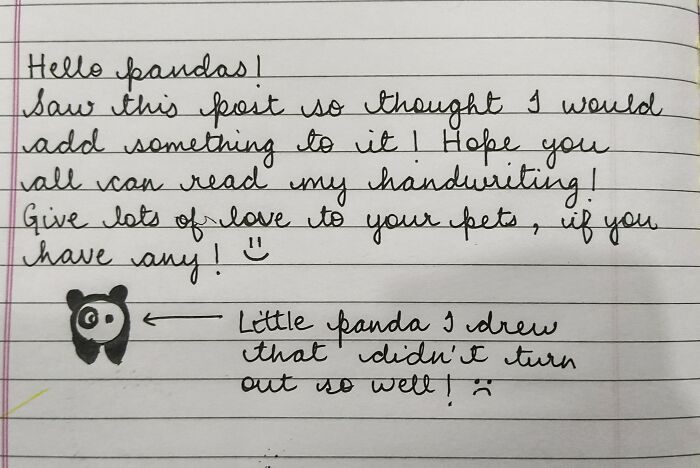 Hello pandas!
Saw this post so thought I would
add something to it! Hope you
all can read my handwriting!
Give lots of love to your pets, if you
have any! :)
Little panda I drew
that didn't turn
out so well! :(